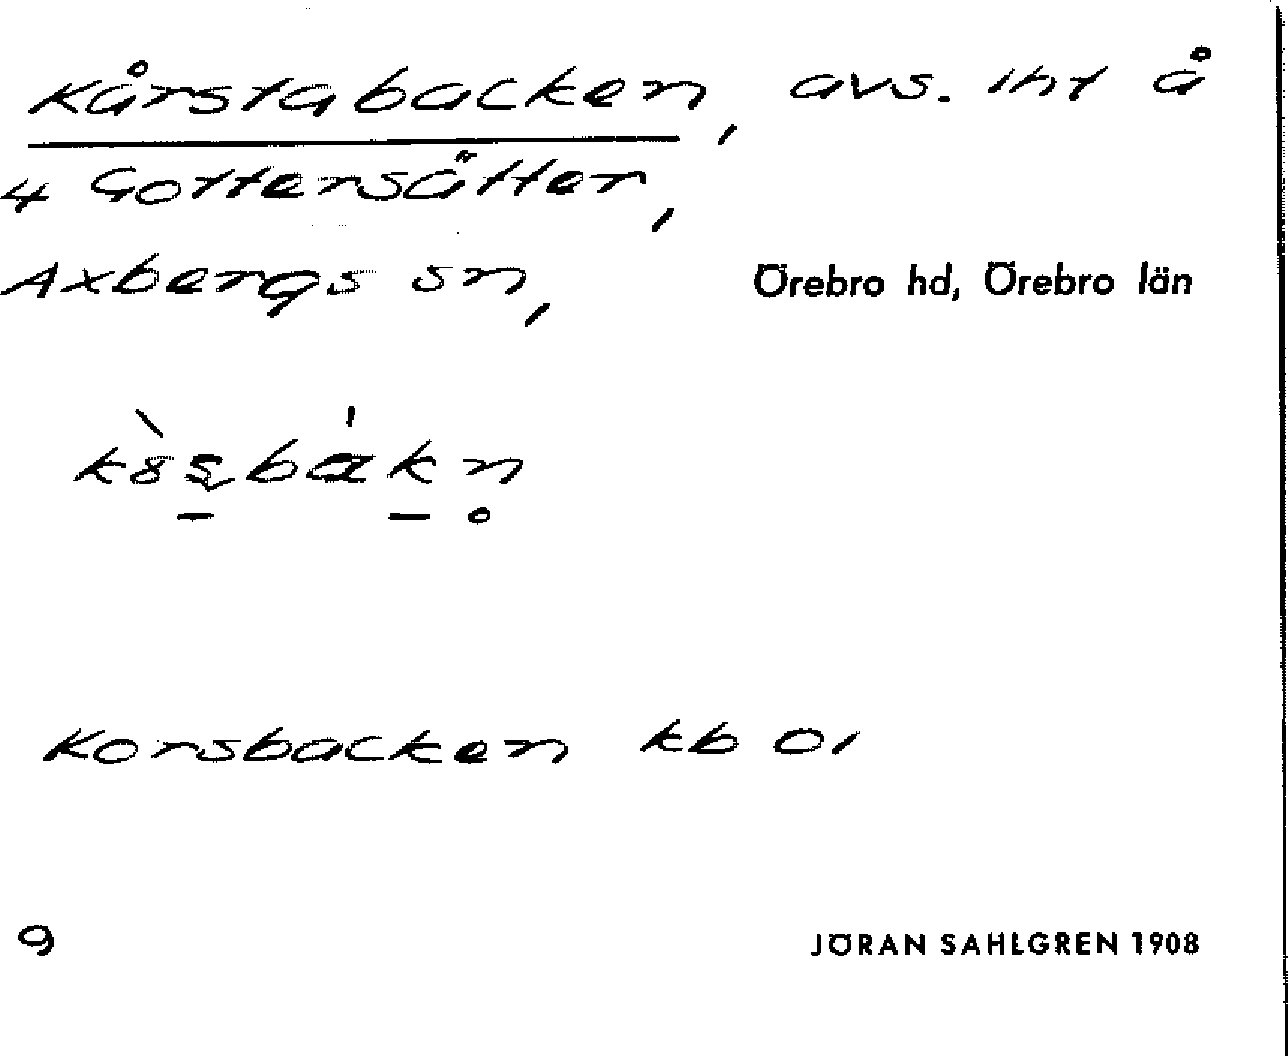 Kårstabacken, avs. iht å
4 Gottersätter,
Axbergs sn, Örebro hd, Örebro län
Korsbacken kb 01
9 JÖRAN SAHLGREN 1908